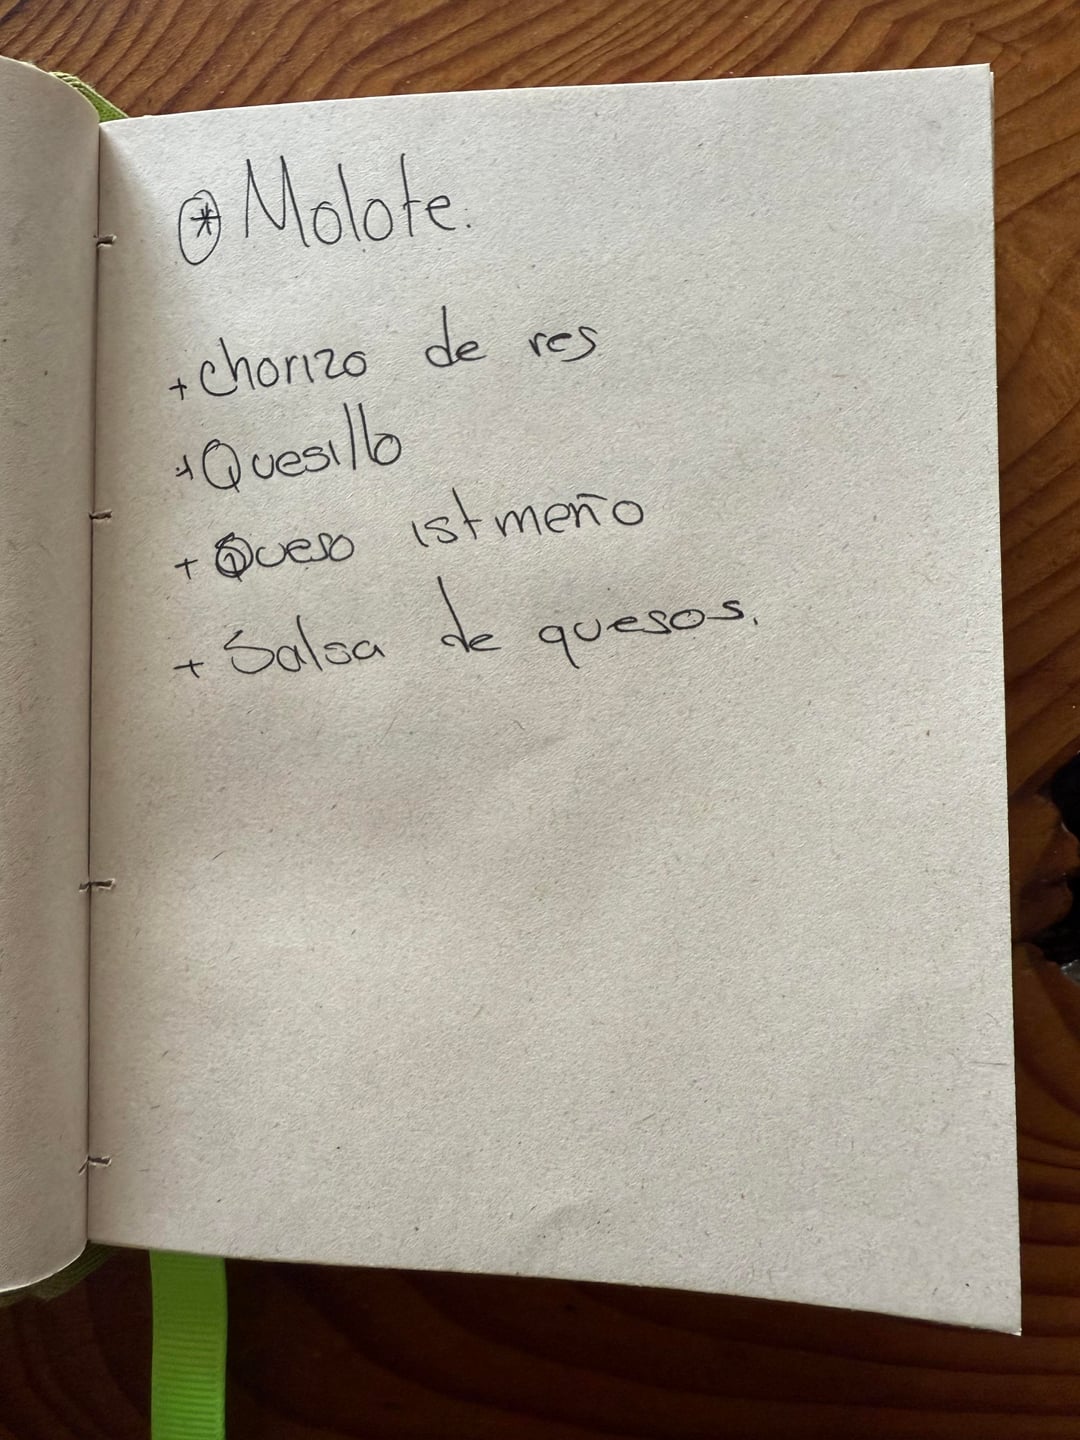 * Molote.
+ Chorizo de res
+ Quesillo
+ Queso istmeño
+ Salsa de quesos.